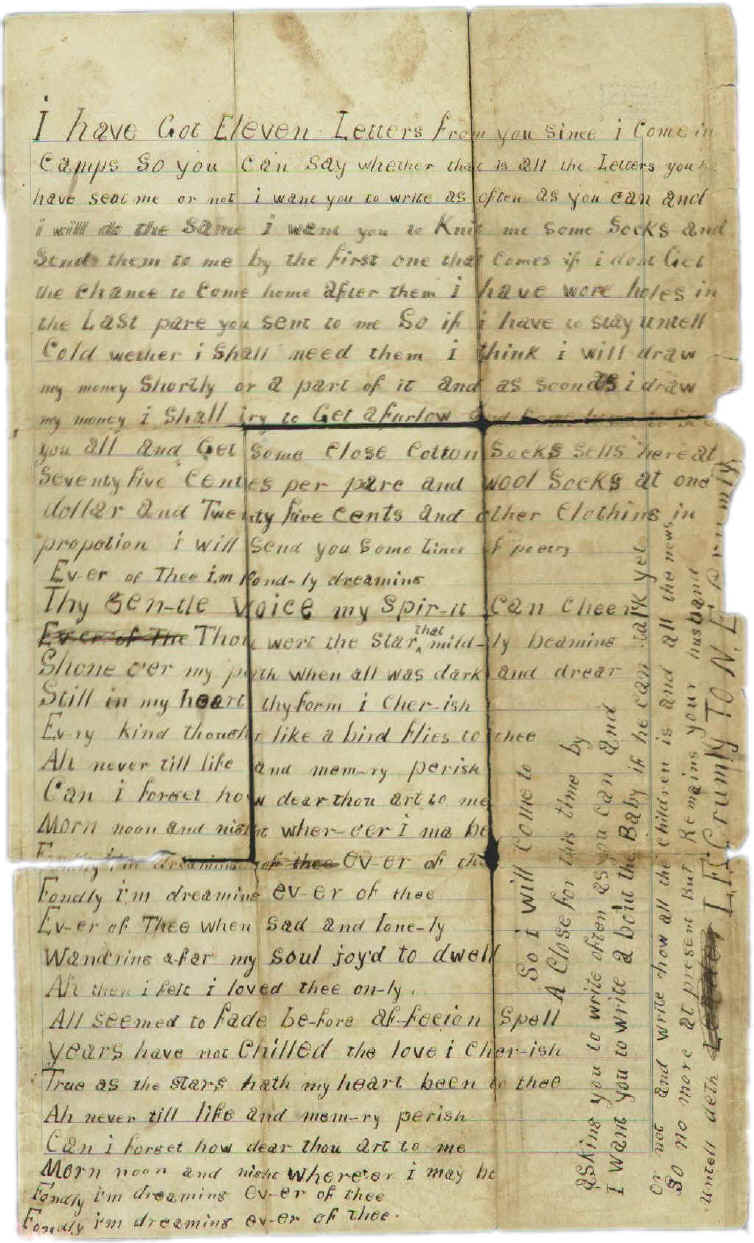 i have Got Eleven Letters from you since i Come in
Camps So you Can Say whether that is all the Letters you
have sent me or not i want you to write as often as you can and
i will do the same i want you to Knit me some Socks and
Send them to me by the first one that Comes if i dont Get
the chance to Come home after them i have wore holes in
the Last pare you sent to me So if i have to stay untell
Cold wether i Shall need them i think i will draw
my money Shortly or a part of it and as soond as i draw
my money i Shall try to Get a furlow and Come home to See
you all and Get Some Close Cotton Socks Sells here at
Seventy five Cents per pare and wool Socks at one
dollar and Twenty five cents and other Clothing in
propotion i will Send you Some lines of poetry
Ev-er of Thee i.m fond-ly dreaming
Thy Gen-tle voice my Spir-it Can Cheer
Ever of The Thou wert the Star that mild-ly beaming
Shone oer my path when all was dark and drear
Still in my heart thy form i Cher-ish
Ev-ry kind thought like a bird flies to thee
Ah never till life and mem-ry perish
Can i forget how dear thou art to me
Morn noon and night wher-eer i ma be
Fondly i'm Dreaming of thee ev-er of thee
Fondly i'm dreaming ev-er of thee
Ev-er of Thee when Sad and lone-ly
Wandring afar my soul joy'd to dwell
Ah then i felt i loved thee on-ly.
All seemed to fade be-fore af-fecion Spell
years have not Chilled the love i Cher-ish
True as the stars hath my heart been to thee
Ah never till life and mem-ry perish
Can i forget how dear thou art to me
Morn noon and night whereer i may be
Fondly i'm dreaming ev-er of thee
Fondly i'm dreaming ev-er of thee.
So i will Come to
A Close for this time by
asking you to write often as you can and
I want you to write a bout the Baby if he can talk yet
or not and write how all the children is and all the news
So no more at present But Remains your husband
untell deth L.F. Crumly TO N.E. Crumly